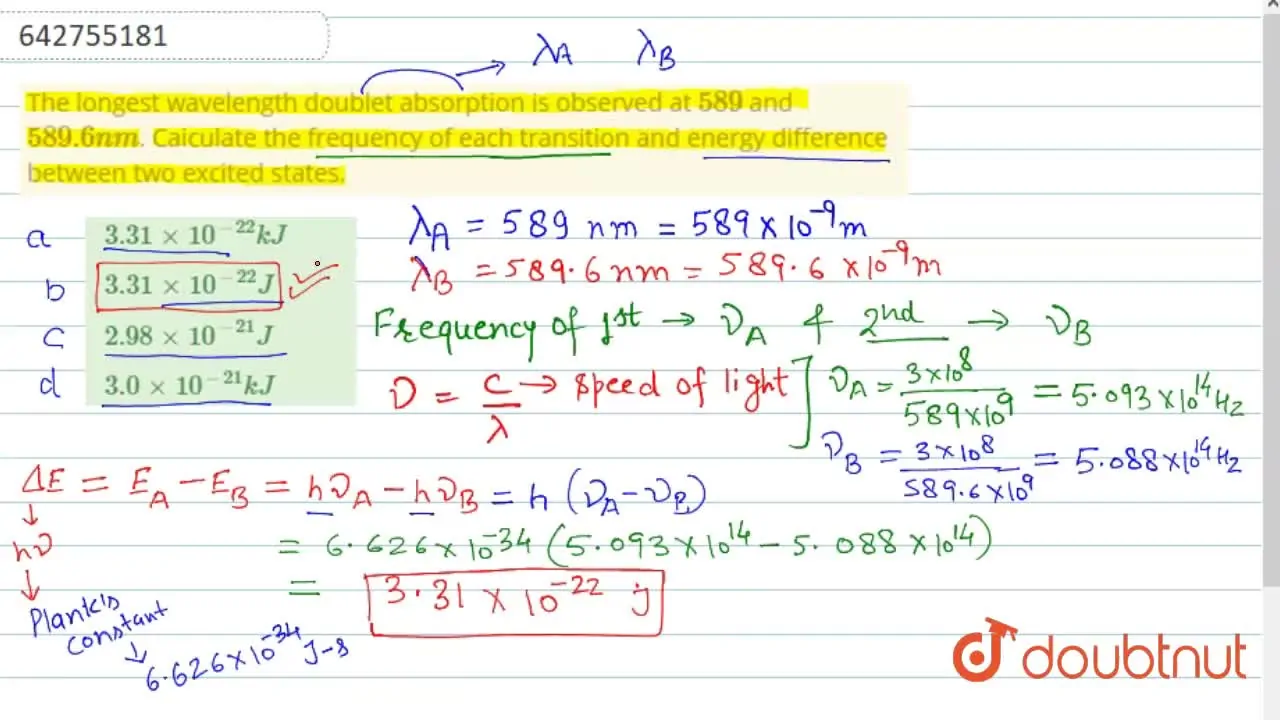 642755181
λA λB
The longest wavelength doublet absorption is observed at 589 and
589.6nm. Calculate the frequency of each transition and energy difference
between two excited states.
a 3.31 × 10⁻²² kJ
b 3.31 × 10⁻²² J
c 2.98 × 10⁻²¹ J
d 3.0 × 10⁻²¹ kJ
λA = 589 nm = 589 × 10⁻⁹ m
λB = 589.6 nm = 589.6 × 10⁻⁹ m
Frequency of 1st → νA & 2nd → νB
ν = c/λ → speed of light
νA = 3×10⁸/589×10⁹ = 5.093 × 10¹⁴ Hz
νB = 3×10⁸/589.6×10⁹ = 5.088 × 10¹⁴ Hz
ΔE = EA − EB = hνA − hνB = h (νA − νB)
↓
hν
= 6.626 × 10⁻³⁴ (5.093 × 10¹⁴ − 5.088 × 10¹⁴)
= 3.31 × 10⁻²² J
↓
Plank's
constant
↓
6.626 × 10⁻³⁴ J-s
doubtnut